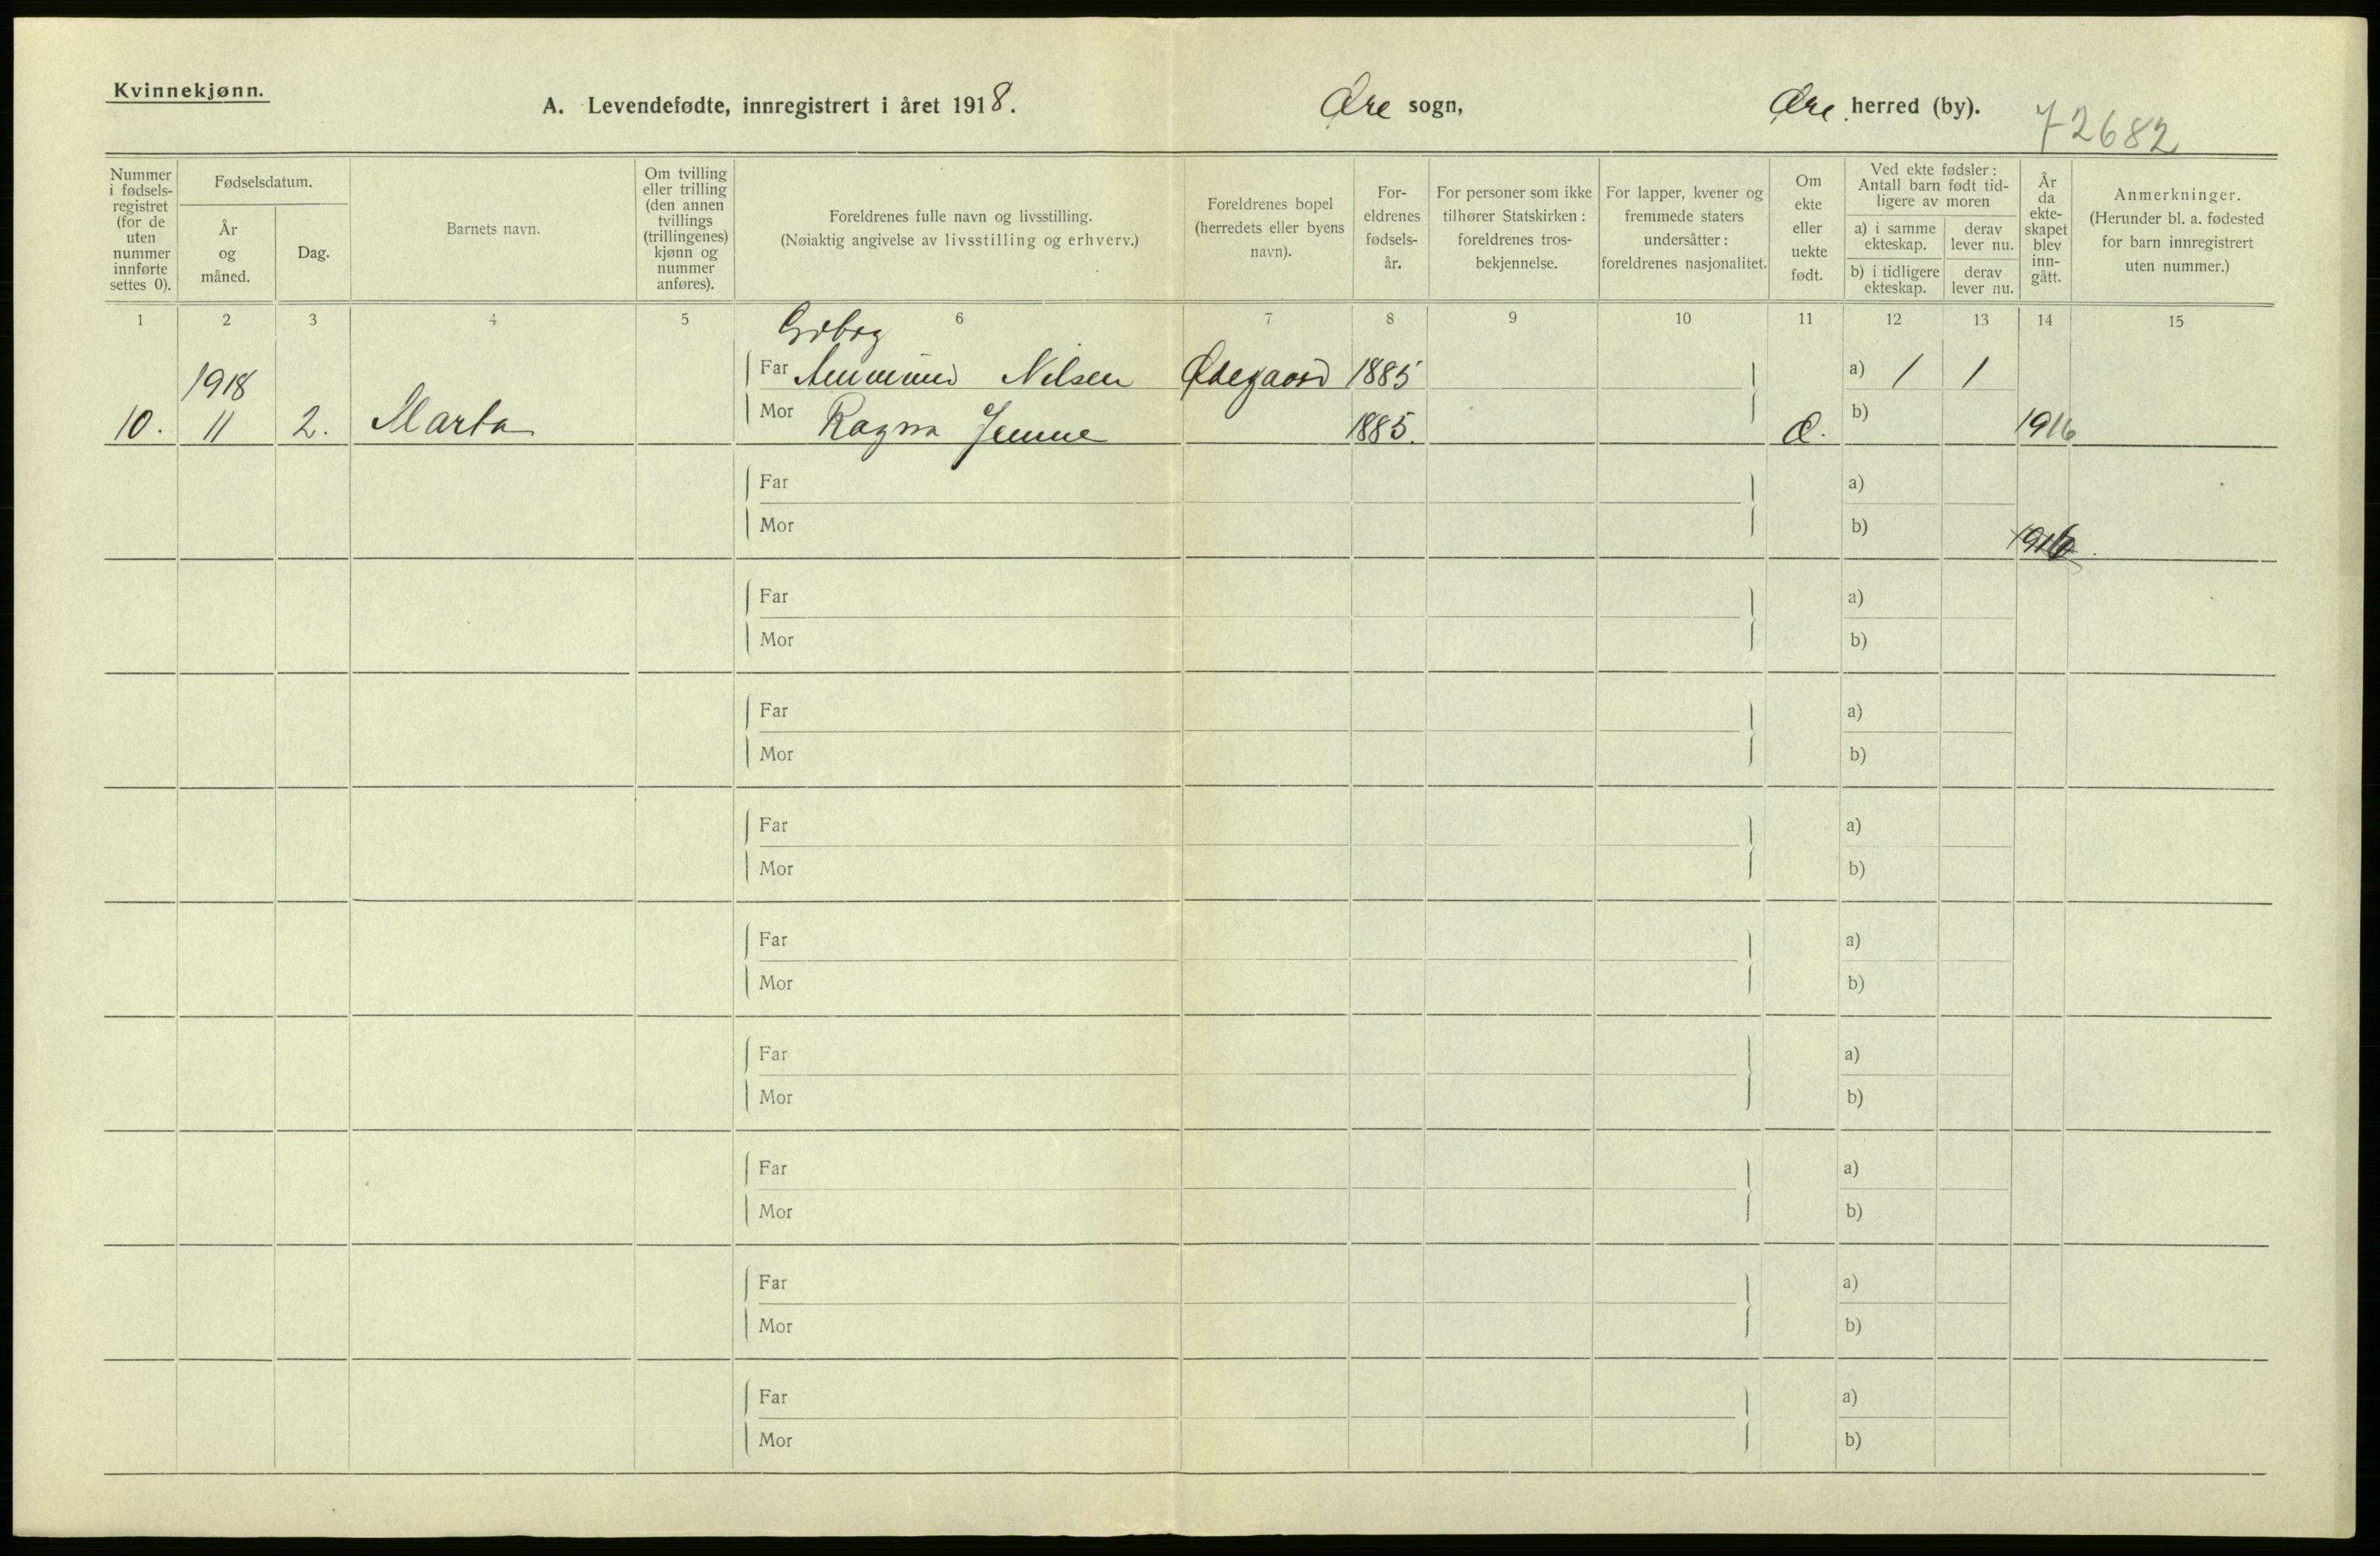 Kvinnekjønn.
A. Levendefødte, innregistrert i året 1918.
Øre sogn,
Øre herred (by).
72682
Nummer i fødsels- registret (for de uten nummer innførte settes 0).
Fødselsdatum.
År og måned.
Dag.
Barnets navn.
Om tvilling eller trilling (den annen tvillings (trillingenes) kjønn og nummer anføres).
Foreldrenes fulle navn og livsstilling.
(Nøiaktig angivelse av livsstilling og erhverv.)
Foreldrenes bopel (herredets eller byens navn).
For- eldrenes fødsels- år.
For personer som ikke tilhører Statskirken: foreldrenes tros- bekjennelse.
For lapper, kvener og fremmede staters undersåtter: foreldrenes nasjonalitet.
Om ekte eller uekte født.
Ved ekte fødsler: Antall barn født tid- ligere av moren
a) i samme ekteskap.
derav lever nu.
b) i tidligere ekteskap.
derav lever nu.
År da ekte- skapet blev inn- gått.
Anmerkninger.
(Herunder bl. a. fødested for barn innregistrert uten nummer.)
1 2 3 4 5 6 7 8 9 10 11 12 13 14 15
Far Nilsen Ødegaard 1885 a) 1 1
1918
10. 11 2. Marta Mor Ragna 1885. b) 1916
Far a)
Mor b) 1916
Far a)
Mor b)
Far a)
Mor b)
Far a)
Mor b)
Far a)
Mor b)
Far a)
Mor b)
Far a)
Mor b)
Far a)
Mor b)
Far a)
Mor b)